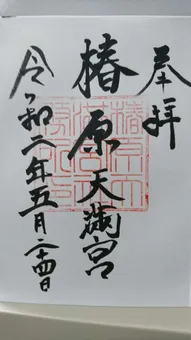 奉拝
椿原天満宮
令和二年五月二十四日